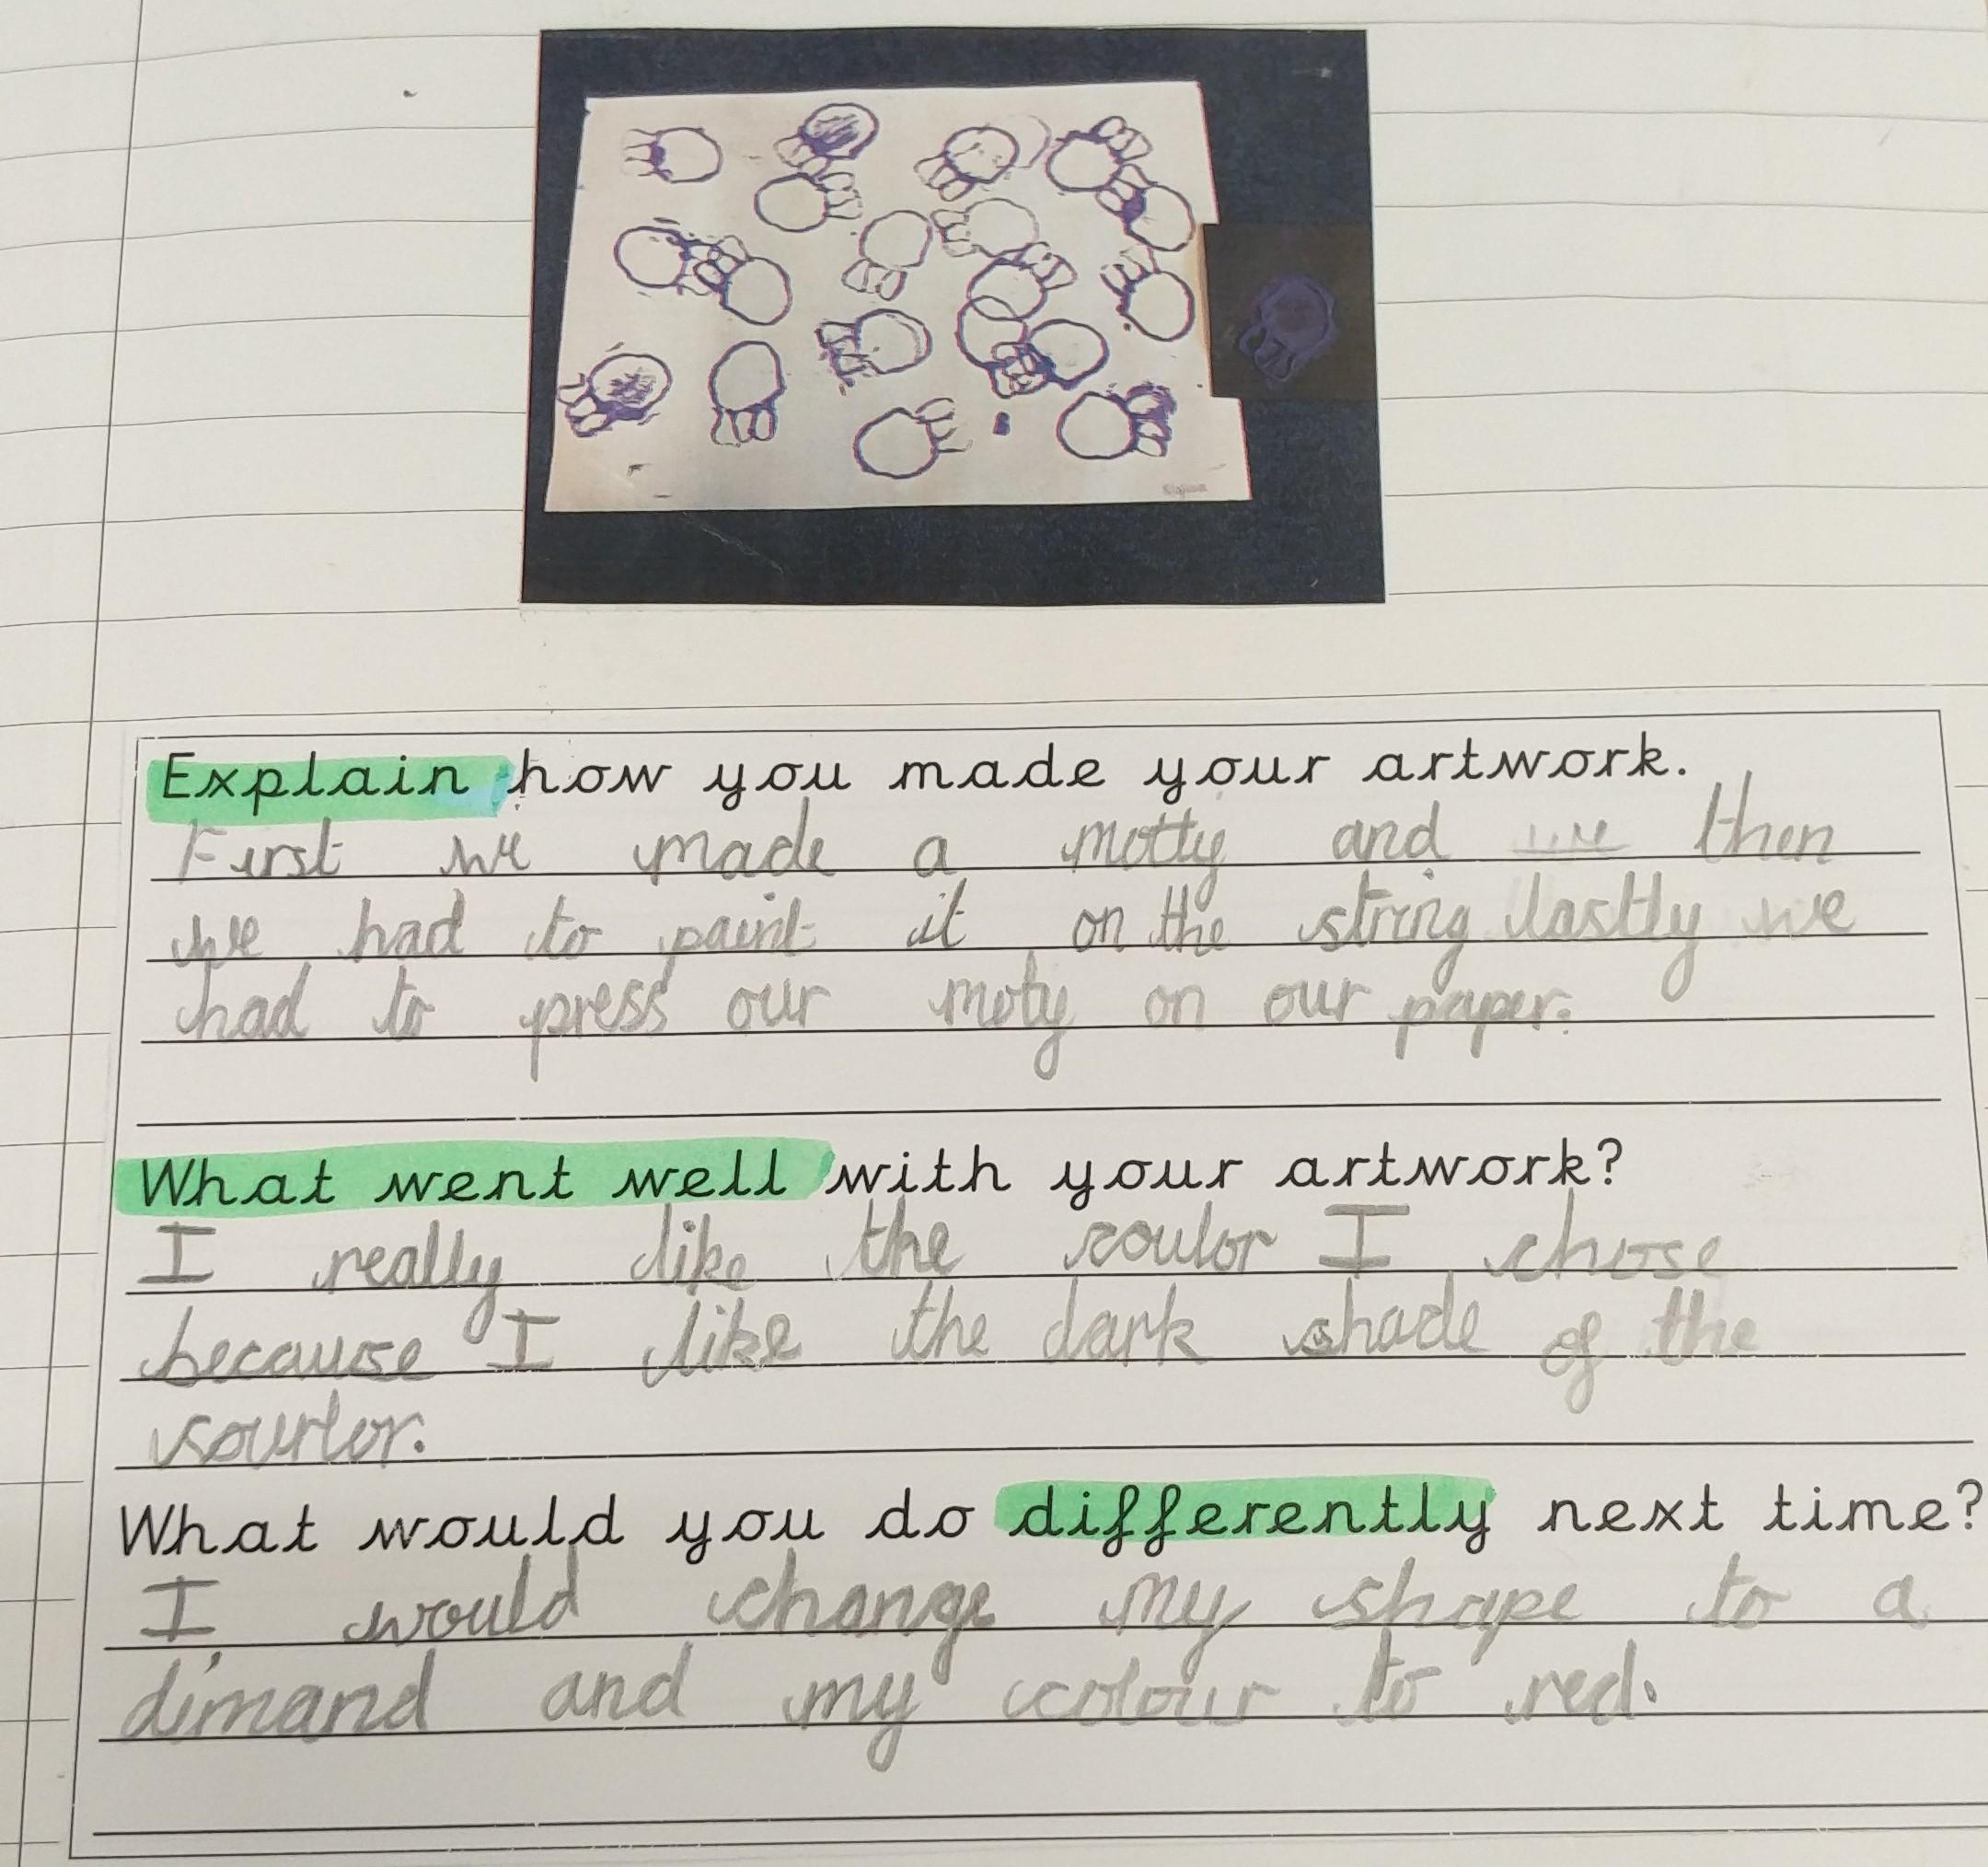 Explain how you made your artwork.
First we made a motty and then
we had to paint it on the string lastly we
had to press our moty on our paper.
What went well with your artwork?
I really like the coulor I chose
because I like the dark shade of the
courlor.
What would you do differently next time?
I would change my shape to a
dimand and my colour to red.